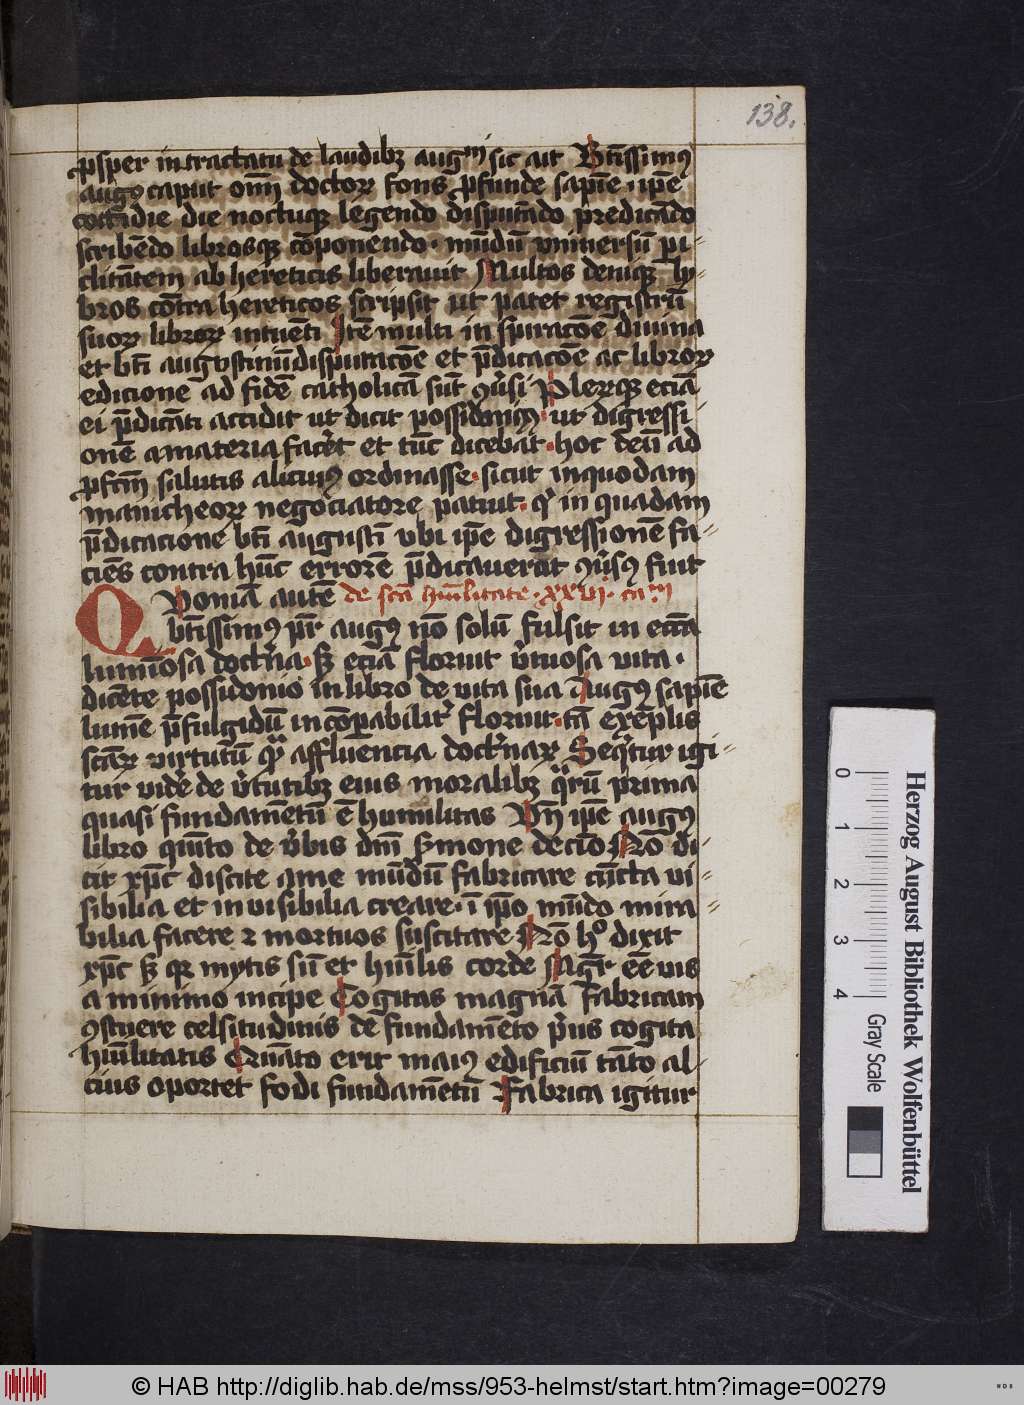 138.
ꝓsper in tractatu de laudibꝫ augmi sic ait Btissimꝰ
augꝰ caput omī doctoꝝ fons ꝓfunde sapīe ipē
cottidie die noctuqꝫ legendo disputādo predicādo
scribēdo librosqꝫ cōponendo · mūdū vniuersū pi-
clitātem ab hereticis liberauit Multos deniqꝫ ly-
bros cōtra hereticos scripsit ut patet registrū
suoꝝ libroꝝ intuēti Itē multi in spiracōe diuina
et bti augustini disputacōe et p̄dicacōe ac libroꝝ
edicione ad fidē catholicā sūt ꝯūsi Pleꝝqꝫ eciā
ei p̄dicāti accidit ut dicit possidoniꝰ · ut digressi-
onē a materia facēt et tūc dicebat · hoc deū ad
ꝓfcm̄ salutis alicuiꝰ ordinasse · sicut in quodam
manicheoꝝ negociatore patuit · qͥ in quadam
p̄dicacione bti augusti vbi ipē digressionē fa-
ciēs contra hūc errorē p̄dicauerat ꝯūsꝰ fuit
Qvoniā autē de sctā hūilitate · xxvi · cam
btissimꝰ pr̄ augꝰ nō solū fulsit in ecc̄a
luminosa doctͥna · sꝫ eciā floruit v̄tuosa vita ·
dicēte possidonio in libro de vita sua Augꝰ sapīe
lumē p̄fulgidū incōparabilit̄ floruit · tā exēplis
sctāꝝ virtutū qͣꝫ affluencia doctͥnaꝝ Seqͥtur igi-
tur vidē de v̄tutibꝫ eius moralibꝫ qͣrū prima
quasi fundamētū ē humilitas Vn̄ ipē augꝰ
libro quīto de v̄bis dnī sͬmone decīo Nō di-
cit xpc̄ discite a me mūdū fabricare cūcta vi-
sibilia et inuisibilia creare · ī ip̄o mūdo mira-
bilia facere ⁊ mortuos suscitare Nō hͦ dixit
xpc̄ sꝫ qꝛ mytis sū et hūilis corde Mgͣr ēē vis
a minimo incipe Cogitas magnā fabricam
ꝯstuere celsitudinis de fundamēto pͥus cogita
hūilitatis Quāto erit maiꝰ edificiū tāto al-
cius oportet fodi fundamētū Fabrica igitur
0
1
2
3
4
Gray Scale
Herzog August Bibliothek Wolfenbüttel
© HAB http://diglib.hab.de/mss/953-helmst/start.htm?image=00279